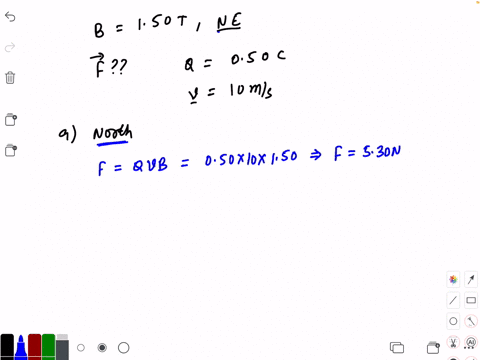 B = 1.50 T, NE
F ?? Q = 0.50 C
v = 10 m/s
a) North
F = QVB = 0.50×10×1.50 ⇒ F = 5.30N